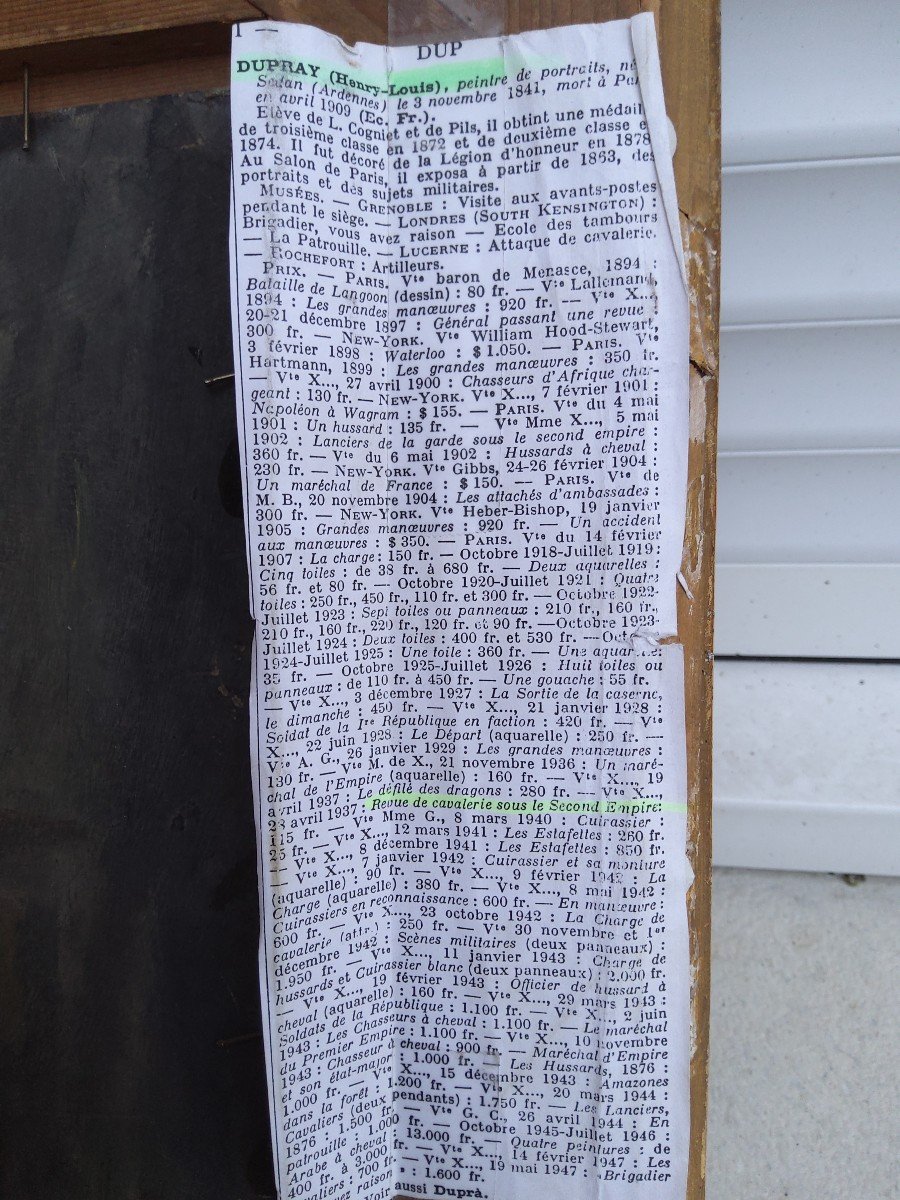 1 —
DUP
DUPRAY (Henry-Louis), peintre de portraits, né
Sedan (Ardennes) le 3 novembre 1841, mort à
en avril 1909 (Ec. Fr.).
Elève de L. Cogniet et de Pils, il obtint une médail
de troisième classe en 1872 et de deuxième classe e
1874. Il fut décoré de la Légion d'honneur en 1878
Au Salon de Paris, il exposa à partir de 1863, des
portraits et des sujets militaires.
MUSÉES. — GRENOBLE : Visite aux avants-postes
pendant le siège. — LONDRES (SOUTH KENSINGTON) :
Brigadier, vous avez raison — Ecole des tambours
— La Patrouille. — LUCERNE : Attaque de cavalerie.
— ROCHEFORT : Artilleurs.
PRIX. — PARIS. Vte baron de Menasce, 1894 :
Bataille de Langoon (dessin) : 80 fr. — Vte Lallemand,
1894 : Les grandes manœuvres : 920 fr. — Vte X...,
20-21 décembre 1897 : Général passant une revue :
300 fr. — NEW-YORK. Vte William Hood-Stewart,
3 février 1898 : Waterloo : $ 1.050. — PARIS. Vte
Hartmann, 1899 : Les grandes manœuvres : 350 fr.
— Vte X..., 27 avril 1900 : Chasseurs d'Afrique char-
geant : 130 fr. — NEW-YORK. Vte X..., 7 février 1901 :
Napoléon à Wagram : $ 155. — PARIS. Vte du 4 mai
1901 : Un hussard : 135 fr. — Vte Mme X..., 5 mai
1902 : Lanciers de la garde sous le second empire :
360 fr. — Vte du 6 mai 1902 : Hussards à cheval :
230 fr. — NEW-YORK. Vte Gibbs, 24-26 février 1904 :
Un maréchal de France : $ 150. — PARIS. Vte de
M. B., 20 novembre 1904 : Les attachés d'ambassades :
300 fr. — NEW-YORK. Vte Heber-Bishop, 19 janvier
1905 : Grandes manœuvres : 920 fr. — Un accident
aux manœuvres : $ 350. — PARIS. Vte du 14 février
1907 : La charge : 150 fr. — Octobre 1918-Juillet 1919 :
Cinq toiles : de 38 fr. à 680 fr. — Deux aquarelles :
56 fr. et 80 fr. — Octobre 1920-Juillet 1921 : Quatre
toiles : 250 fr., 450 fr., 110 fr. et 300 fr. — Octobre 1922-
Juillet 1923 : Sept toiles ou panneaux : 210 fr., 160 fr.,
210 fr., 160 fr., 220 fr., 120 fr. et 90 fr. — Octobre 1923-
Juillet 1924 : Deux toiles : 400 fr. et 530 fr. —
1924-Juillet 1925 : Une toile : 360 fr. — Une
35 fr. — Octobre 1925-Juillet 1926 : Huit toiles ou
panneaux : de 110 fr. à 450 fr. — Une gouache : 55 fr.
— Vte X..., 3 décembre 1927 : La Sortie de la caserne,
le dimanche : 450 fr. — Vte X..., 21 janvier 1928 :
Soldat de la Ire République en faction : 420 fr. — Vte
X..., 22 juin 1928 : Le Départ (aquarelle) : 250 fr. —
Vte A. G., 26 janvier 1929 : Les grandes manœuvres :
130 fr. — Vte M. de X., 21 novembre 1936 : Un maré-
chal de l'Empire (aquarelle) : 160 fr. — Vte X..., 19
avril 1937 : Le défilé des dragons : 280 fr. — Vte X...,
28 avril 1937 : Revue de cavalerie sous le Second Empire:
115 fr. — Vte Mme G., 8 mars 1940 : Cuirassier :
25 fr. — Vte X..., 12 mars 1941 : Les Estafettes : 260 fr.
— Vte X..., 8 décembre 1941 : Les Estafettes : 850 fr.
— Vte X..., 7 janvier 1942 : Cuirassier et sa monture
(aquarelle) : 90 fr. — Vte X..., 9 février 1942 : La
Charge (aquarelle) : 380 fr. — Vte X..., 8 mai 1942 :
Cuirassiers en reconnaissance : 600 fr. — En manœuvre :
600 fr. — Vte X..., 23 octobre 1942 : La Charge de
cavalerie (attr.) : 250 fr. — Vte 30 novembre et 1er
décembre 1942 : Scènes militaires (deux panneaux) :
1.950 fr. — Vte X..., 11 janvier 1943 : Charge de
hussards et Cuirassier blanc (deux panneaux) : 2.000 fr.
— Vte X..., 19 février 1943 : Officier de hussard à
cheval (aquarelle) : 160 fr. — Vte X..., 29 mars 1943 :
Soldats de la République : 1.100 fr. — Vte X..., 2 juin
1943 : Les Chasseurs à cheval : 1.100 fr. — Le maréchal
du Premier Empire : 1.100 fr. — Vte X..., 10 novembre
1943 : Chasseur à cheval : 900 fr. — Maréchal d'Empire
et son état-major : 1.000 fr. — Les Hussards, 1876 :
1.000 fr. — Vte X..., 15 décembre 1943 : Amazones
dans la forêt : 1.200 fr. — Vte X..., 20 mars 1944 :
Cavaliers (deux pendants) : 1.750 fr. — Les Lanciers,
1876 : 1.500 fr. — Vte G. C., 26 avril 1944 : En
patrouille : 1.000 fr. — Octobre 1945-Juillet 1946 :
Arabe à cheval : 13.000 fr. — Quatre peintures : de
400 fr. à 3.000 fr. — Vte X..., 14 février 1947 : Les
valiers : 700 fr. — Vte X..., 19 mai 1947 : Brigadier
vez raison : 1.600 fr.
Voir aussi Duprà.